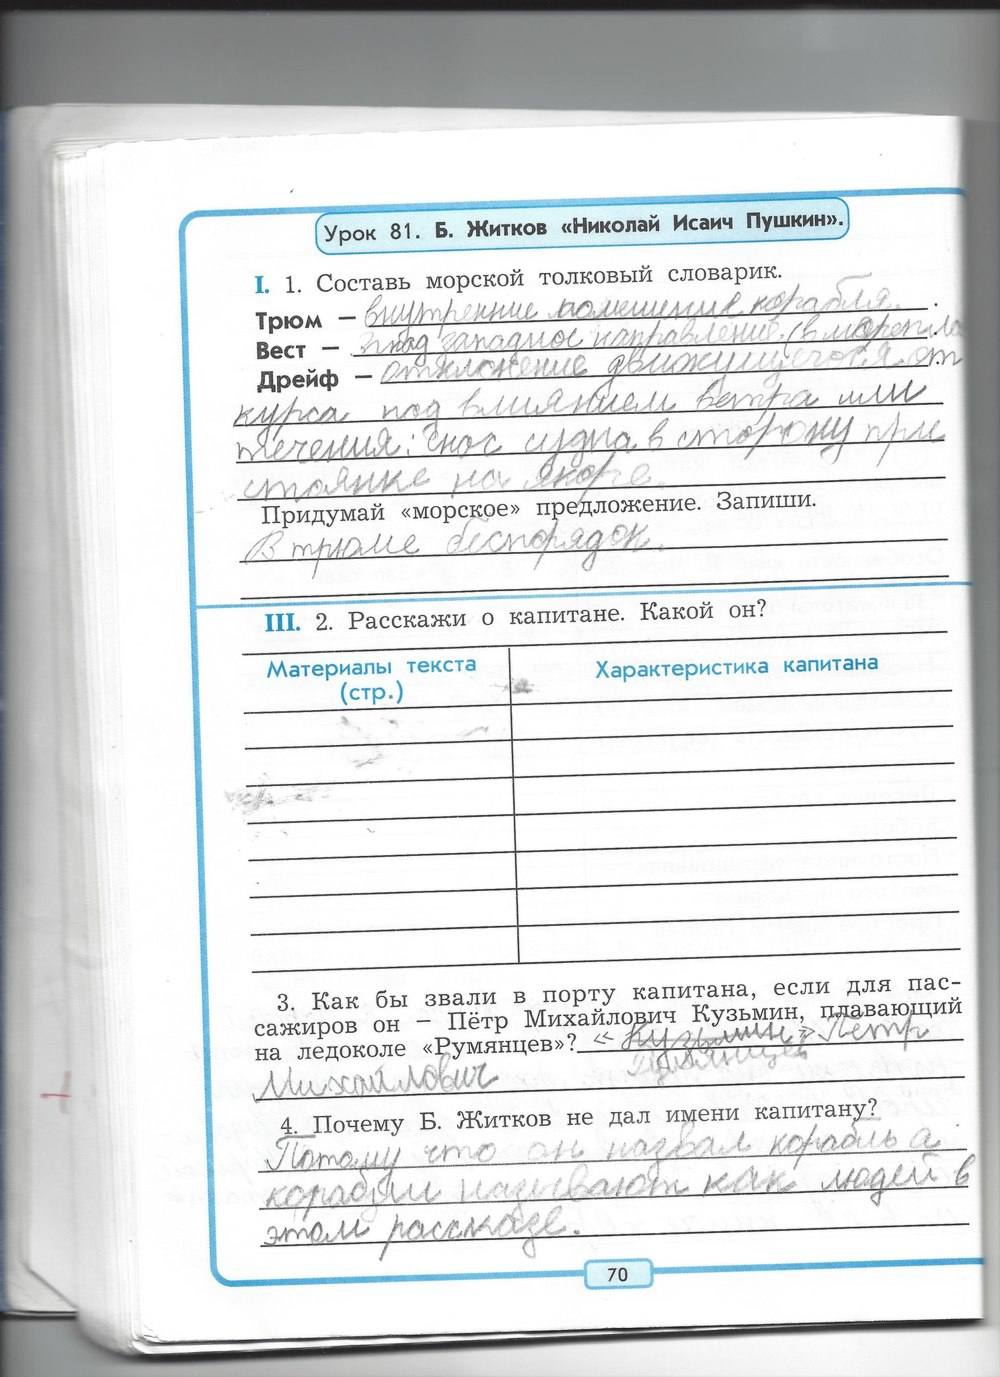 Урок 81. Б. Житков «Николай Исаич Пушкин».
I. 1. Составь морской толковый словарик.
Трюм – внутренние помещение корабля.
Вест – западное направление. (в мореплав
Дрейф – отклонение движущегося от
курса под влиянием ветра или
течения; снос судна в сторону при
стоянке на якоре.
Придумай «морское» предложение. Запиши.
В трюме беспорядок.
III. 2. Расскажи о капитане. Какой он?
Материалы текста
(стр.)
Характеристика капитана
3. Как бы звали в порту капитана, если для пас-
сажиров он – Пётр Михайлович Кузьмин, плавающий
на ледоколе «Румянцев»? «Кузьмин» Пётр
Румянцев
Михайлович
4. Почему Б. Житков не дал имени капитану?
Потому что он назвал корабль а
корабли называют как людей в
этом рассказе.
70